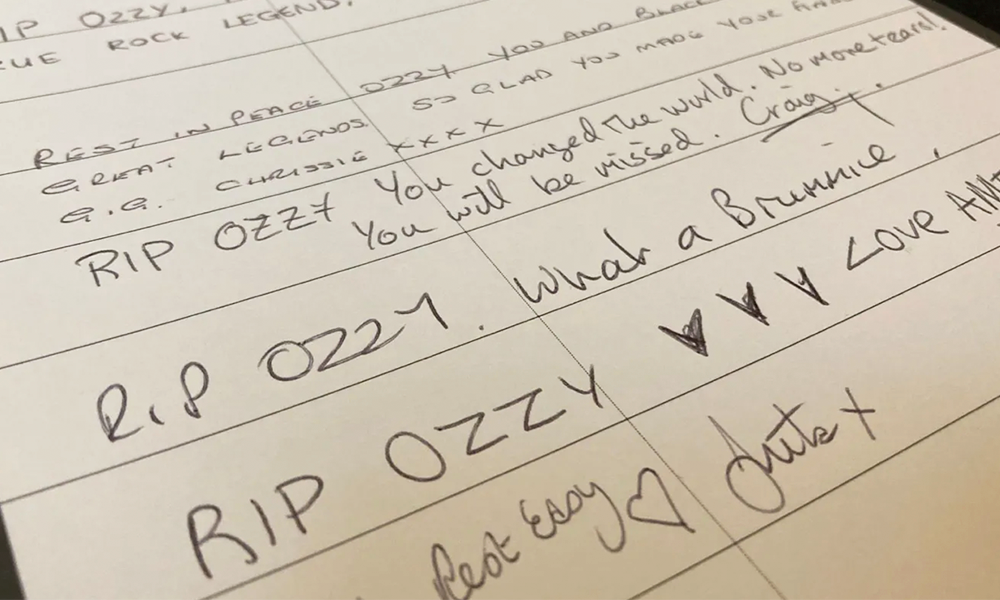 RIP OZZY,
ROCK LEGEND.
REST IN PEACE OZZY YOU AND BLACK
GREAT LEGENDS. SO GLAD YOU MADE YOUR FINAL
G.G. CHRISSIE xxxx
RIP OZZY You changed the world. No more tears!
You will be missed. Craig.
RIP OZZY. What a Brummie.
RIP OZZY LOVE
Rest Easy